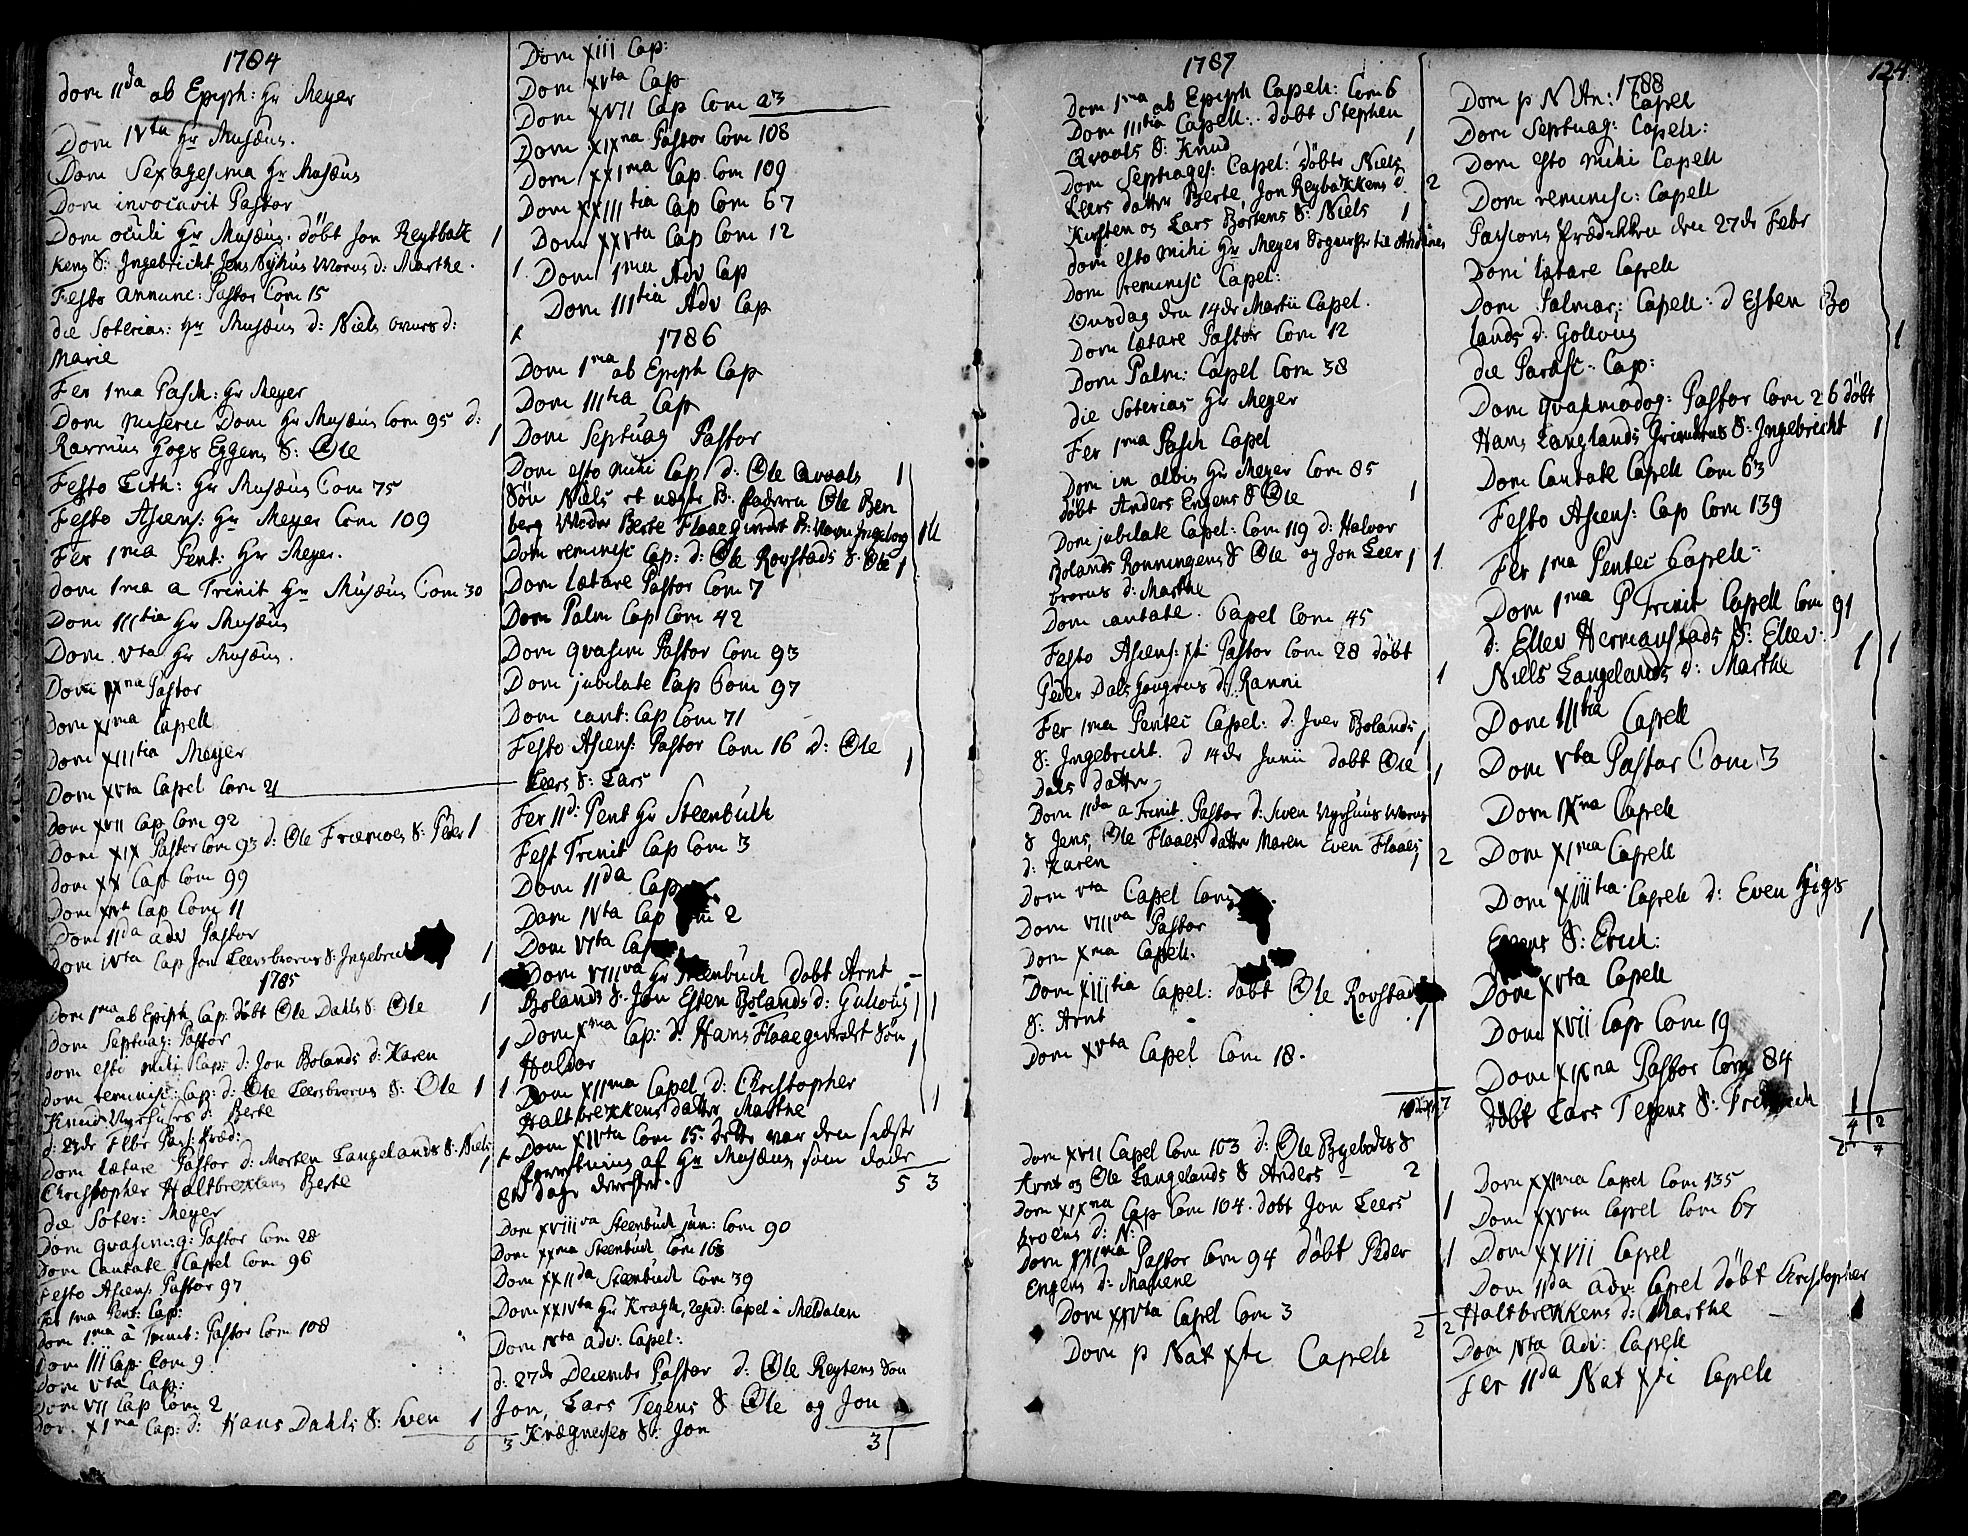 1784
Dom 11da ab Epiph: Hr Meyer
Dom IVta Hr Musæus.
Dom Sexagesima Hr Musæus
Dom invocavit Pastor
Dom oculi Hr Musæus. döbt Jon Reytbak 1
kens S: Ingebricht Jens Nyhus Morus d: Marthe. 1
Festo Annunc: Pastor Com 15
die Soterias: Hr Musæus d: Niels overs d: 1
Marie
Fer 1ma Pasch: Hr Meyer
Dom Miseric Dom Hr Musæus Com 95 d: 1
Rasmus Gogs Eggens S: Ole
Festo Lith: Hr Musæus Com 75
Festo Ascens: Hr Meyer Com 109
Fer 1ma Pent: Hr Meyer.
Dom 1ma a Trinit Hr Musæus Com 30
Dom IIItia Hr Musæus
Dom Vta Hr Musæus.
Dom IXna Pastor
Dom XIma Capell
Dom XIIItia Meyer
Dom XVta Capel Com 21
Dom XVII Cap Com 92
Dom XIX Pastor Com 93 d: Ole Fræmoes S: Peder 1
Dom XX Cap Com 99
Dom Cap Com 11
Dom 11da adv Pastor
Dom IVta Cap Jon Leersbroens S: Ingebricht 1
1785
Dom 1ma ab Epiph Cap: döbt Ole Dahls S: Ole 1
Dom Septuag: Pastor
Dom esto mihi Cap: d: Jon Bolands d: Karen 1
Dom reminisc: Cap: d: Ole Leersbroens S: Ole 1 1
Knud d: Berte
d: 27de Febr Pass: Præd:
Dom lætare Pastor d: Morten Langelands S: Niels 1
Christopher Haltbrekkens Berte 1
die Soter: Meyer
Dom quasim:g: Pastor Com 28
Dom Cantate Capel Com 96
Festo Ascens: Pastor 97
Fer 1ma Pent: Cap:
Dom 1ma a Trinit: Pastor Com 108
Dom III Cap Com 9
Dom Vta Cap:
Dom VII Cap Com 2
Dom XIma Cap: d: Hans Dahls S: Sven 1
6 3
Dom XIII Cap:
Dom XVta Cap
Dom XVII Cap Com 93
Dom XIXna Pastor Com 108
Dom XXIma Cap Com 109
Dom XXIIItia Cap Com 67
Dom XXVta Cap Com 12
Dom 1ma Adv Cap
Dom IIItia Adv Cap
1786
Dom 1ma ab Epiph Cap
Dom IIItia Cap
Dom Septuag Pastor
Dom esto mihi Cap d: Ole Qvaals 1
Sön Niels et uægte B: faderen Ole Ben
berg Moder Berte Flaaegurdet B: Navn Ingeborg
Dom reminisc Cap: d: Ole Rovstads S: Ole 1
Dom lætare Pastor Com 7
Dom Palm Cap Com 42
Dom qvasim Pastor Com 93
Dom jubilate Cap Com 97
Dom cant: Cap Com 71
Festo Ascens: Pastor Com 16 d: Ole 1
Leers S: Lars
Fer 11d: Pent Hr Steenbuch
Fest Trinit Cap Com 3
Dom 11da Cap
Dom IVta Cap 2
Dom VIta Cap
Dom VIIIva Hr Steenbuch döbt Arnt
Bolands S: Jon Esten Bolands d: Gulloug 1 1
Dom Xma Cap: d: Hans Flaaegurdet Sön 1
Haldor
Dom XIIma Capel d: Christopher 1
Haltbrekkens datter Marthe
Dom XIVta Com 15. dette var den sidste
forretning af Hr Musæus som döde
8te dage derefter. 5 3
Dom XVIIIva Steenbuch jun: Com 90
Dom XXma Steenbuch Com 168
Dom XXIIda Steenbuch Com 39
Dom XXIVta Hr Kragh, resid: Capel i Meldalen
Dom IVta adv: Capel:
d: 27de Decembr Pastor d: Ole Reytens Sön
Jon, Lars Tegens S Ole og Jon
Krægneses S: Jon 3
1787
Dom 1ma ab Epiph Capell: Com 6
Dom IIItia Capell: döbt Stephen
Qvaals S: Knud 1
Dom Septuages: Capel: döbte Niels
Leers datter Berte, Jon Reybakkens d. 2
Kirsten og Lars Bortens S: Niels 1
Dom esto mihi Hr Meyer
Dom reminisc Capel:
Onsdag den 14de Martii Capel.
Dom lætare Pastor Com 12
Dom Palm: Capel Com 38
die Soterias Hr Meyer
Fer 1ma Pasch Capel
Dom in albis Hr Meyer Com 85
döbt Anders Engens S Ole 1
Dom jubilate Capel: Com 119 d: Halvor
Bolands Ronningens S Ole og Jon Leer 1 1
broens d: Marthe
Dom cantate. Capel Com 45
Festo Ascens: xti Pastor Com 28 döbt
Peder Dals d: Ranni 1
Fer 1ma Pentec Capel: d: Iver Bolands 1
S: Ingebricht. d 14de Junii döbt Ole 1
Dals datter
Dom 11da a Trinit Pastor d: Sven
S Jens, Ole Flaaes datter Maren Even Flaaes 1 2
d: Karen
Dom Vta Capel Com
Dom VIIIva Pastor
Dom Xma Capell.
Dom XIIItia Capel: döbt Ole Rovstads
S: Arnt 1
Dom XVta Capel Com 18.
7
Dom XVII Capel Com 103 d: Ole Bygebodes S
Arnt og Ole Langelands S Anders 2
Dom XIXna Cap Com 104. döbt Jon Leers 1
broens d: N:
Dom XXIma Pastor Com 94 döbt Peder 1
Engens d: Mariene
Dom XXVta Capel Com 3 2 2
Dom p Nat xti Capell
124
1788
Dom p N An: Capel
Dom Septuag: Capell:
Dom esto mihi Capell
Dom reminisc: Capell
Passions prædikken den 27de Febr
Dom lætare Capell
Dom Palmar: Capell: d Esten Bo
lands d: Gollous 1
die Parasc: Cap:
Dom qvasimodog: Pastor Com 26 döbt
Hans Langlands S: Ingebricht 1
Dom Cantate Capell Com 63
Festo Ascens: Cap Com 139
Fer 1ma Pentec Capell:
Dom 1ma P Trinit Capell Com 91
d: Ellev Hermanstads S: Ellev. 1 1
Niels Langelands d: Marthe
Dom IIItia Capell
Dom Vta Pastor Com 3
Dom IXna Capell
Dom XIma Capell
Dom XIIItia Capell d: Even Gogs
Eggens S: Erich: 1
Dom XVta Capell
Dom XVII Cap Com 19
Dom XIXna Pastor Com 84
döbt Lars Tegens S: Fredrich 1
4 2
Dom XXIma Capel Com 135
Dom XXVta Capel Com 67
Dom XXVII Capel
Dom 11da adv: Capel döbt Christopher
Haltbrekkens d: Marthe 1
Dom IVta Adv: Capell
Fer 11da Nat xti Capell